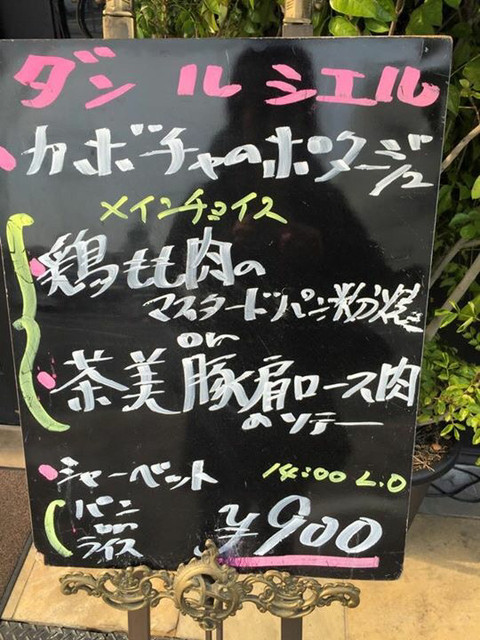 ダン ル シエル
カボチャのポタージュ
メインチョイス
鶏もも肉の
マスタードパン粉焼き
or
茶美豚肩ロース肉
のソテー
シャーベット
14:00 L.O
パン
or
ライス
¥900